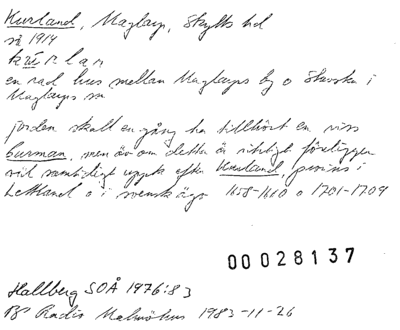 Kurland, Maglarp, Skytts hd
rå 1914
kʉ̄rlan
en rad hus mellan Maglarps by o Skurska i
Maglarps sn
jorden skall en gång ha tillhört en viss
Curman, men även om detta är riktigt föreligger
väl samtidigt uppk efter Kurland, provins i
Lettland o i svensk ägo 1658-1660 o 1701-1709
00028137
Hallberg SOÅ 1976:83
Br Radio Malmöhus 1983-11-26